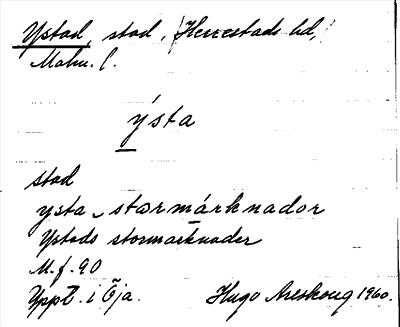 Ystad, stad, Herrestads hd,
Malm. l.
ýsta
stad
ysta stormárknador
Ystads stormarknader
M.f. 90
Uppt. i Öja. Hugo Areskoug 1960.